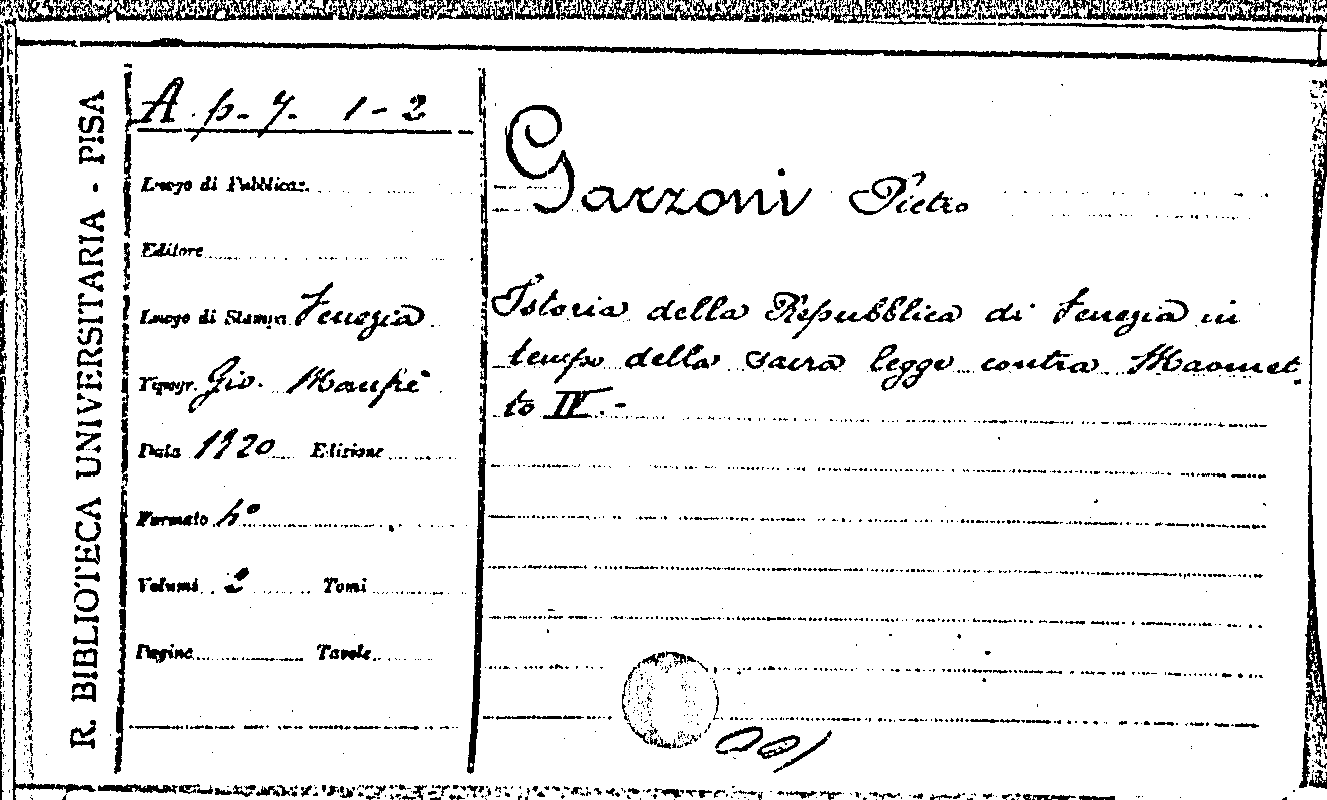 R. BIBLIOTECA UNIVERSITARIA - PISA
A. p. 7. 1-2
Luogo di Pubblicaz.
Editore
Luogo di Stampa Venezia
Tipogr. Gio. Manfrè
Data 1720 Edizione
Formato 4°
Volumi 2 Tomi
Pagine Tavole
Garzoni Pietro
Istoria della Repubblica di Venezia in
tempo della sacra legge contra Maomet
to IV.-